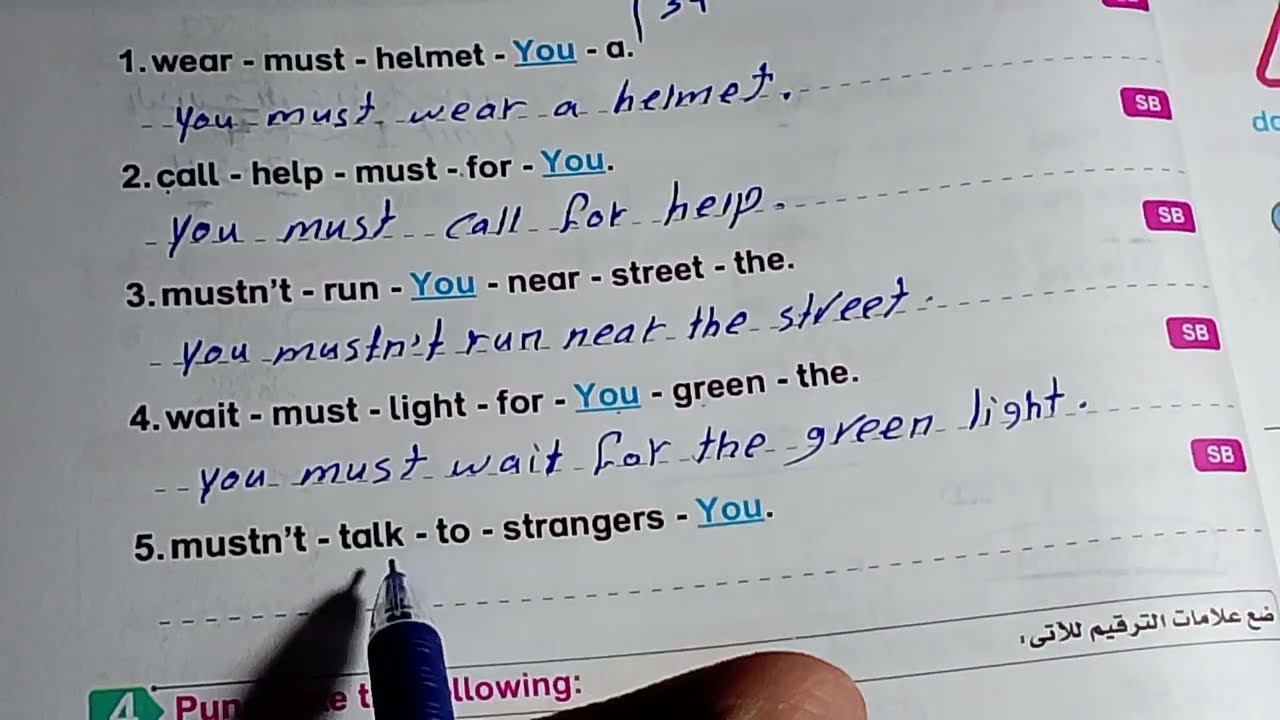 1. wear - must - helmet - You - a.
You must wear a helmet.
SB
2. call - help - must - for - You.
You must call for help.
SB
3. mustn't - run - You - near - street - the.
You mustn't run near the street.
SB
4. wait - must - light - for - You - green - the.
You must wait for the green light.
SB
5. mustn't - talk - to - strangers - You.
ضع علامات الترقيم للآتى:
4
following: